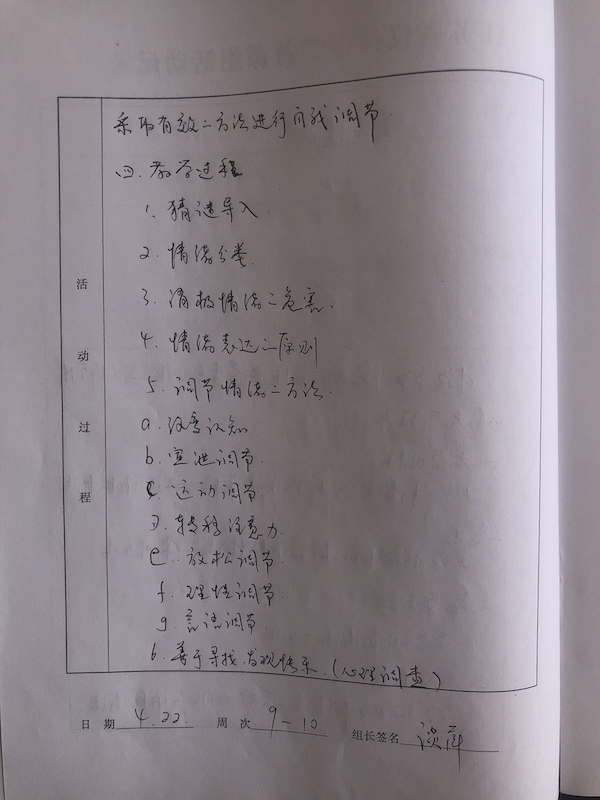 采取有效二方法进行自我调节
四.教学过程
1.猜谜导入.
2.情绪分类.
3.消极情绪二危害.
4.情绪表达二原则
5.调节情绪二方法.
a.改变认知
b.宣泄调节.
c 运动调节
d.转移注意力.
e.放松调节
f.理性调节
g.言语调节.
6.善于寻找.发现快乐.(心理调查)
活动过程
日 期 4.22. 周 次 9-10 组长签名